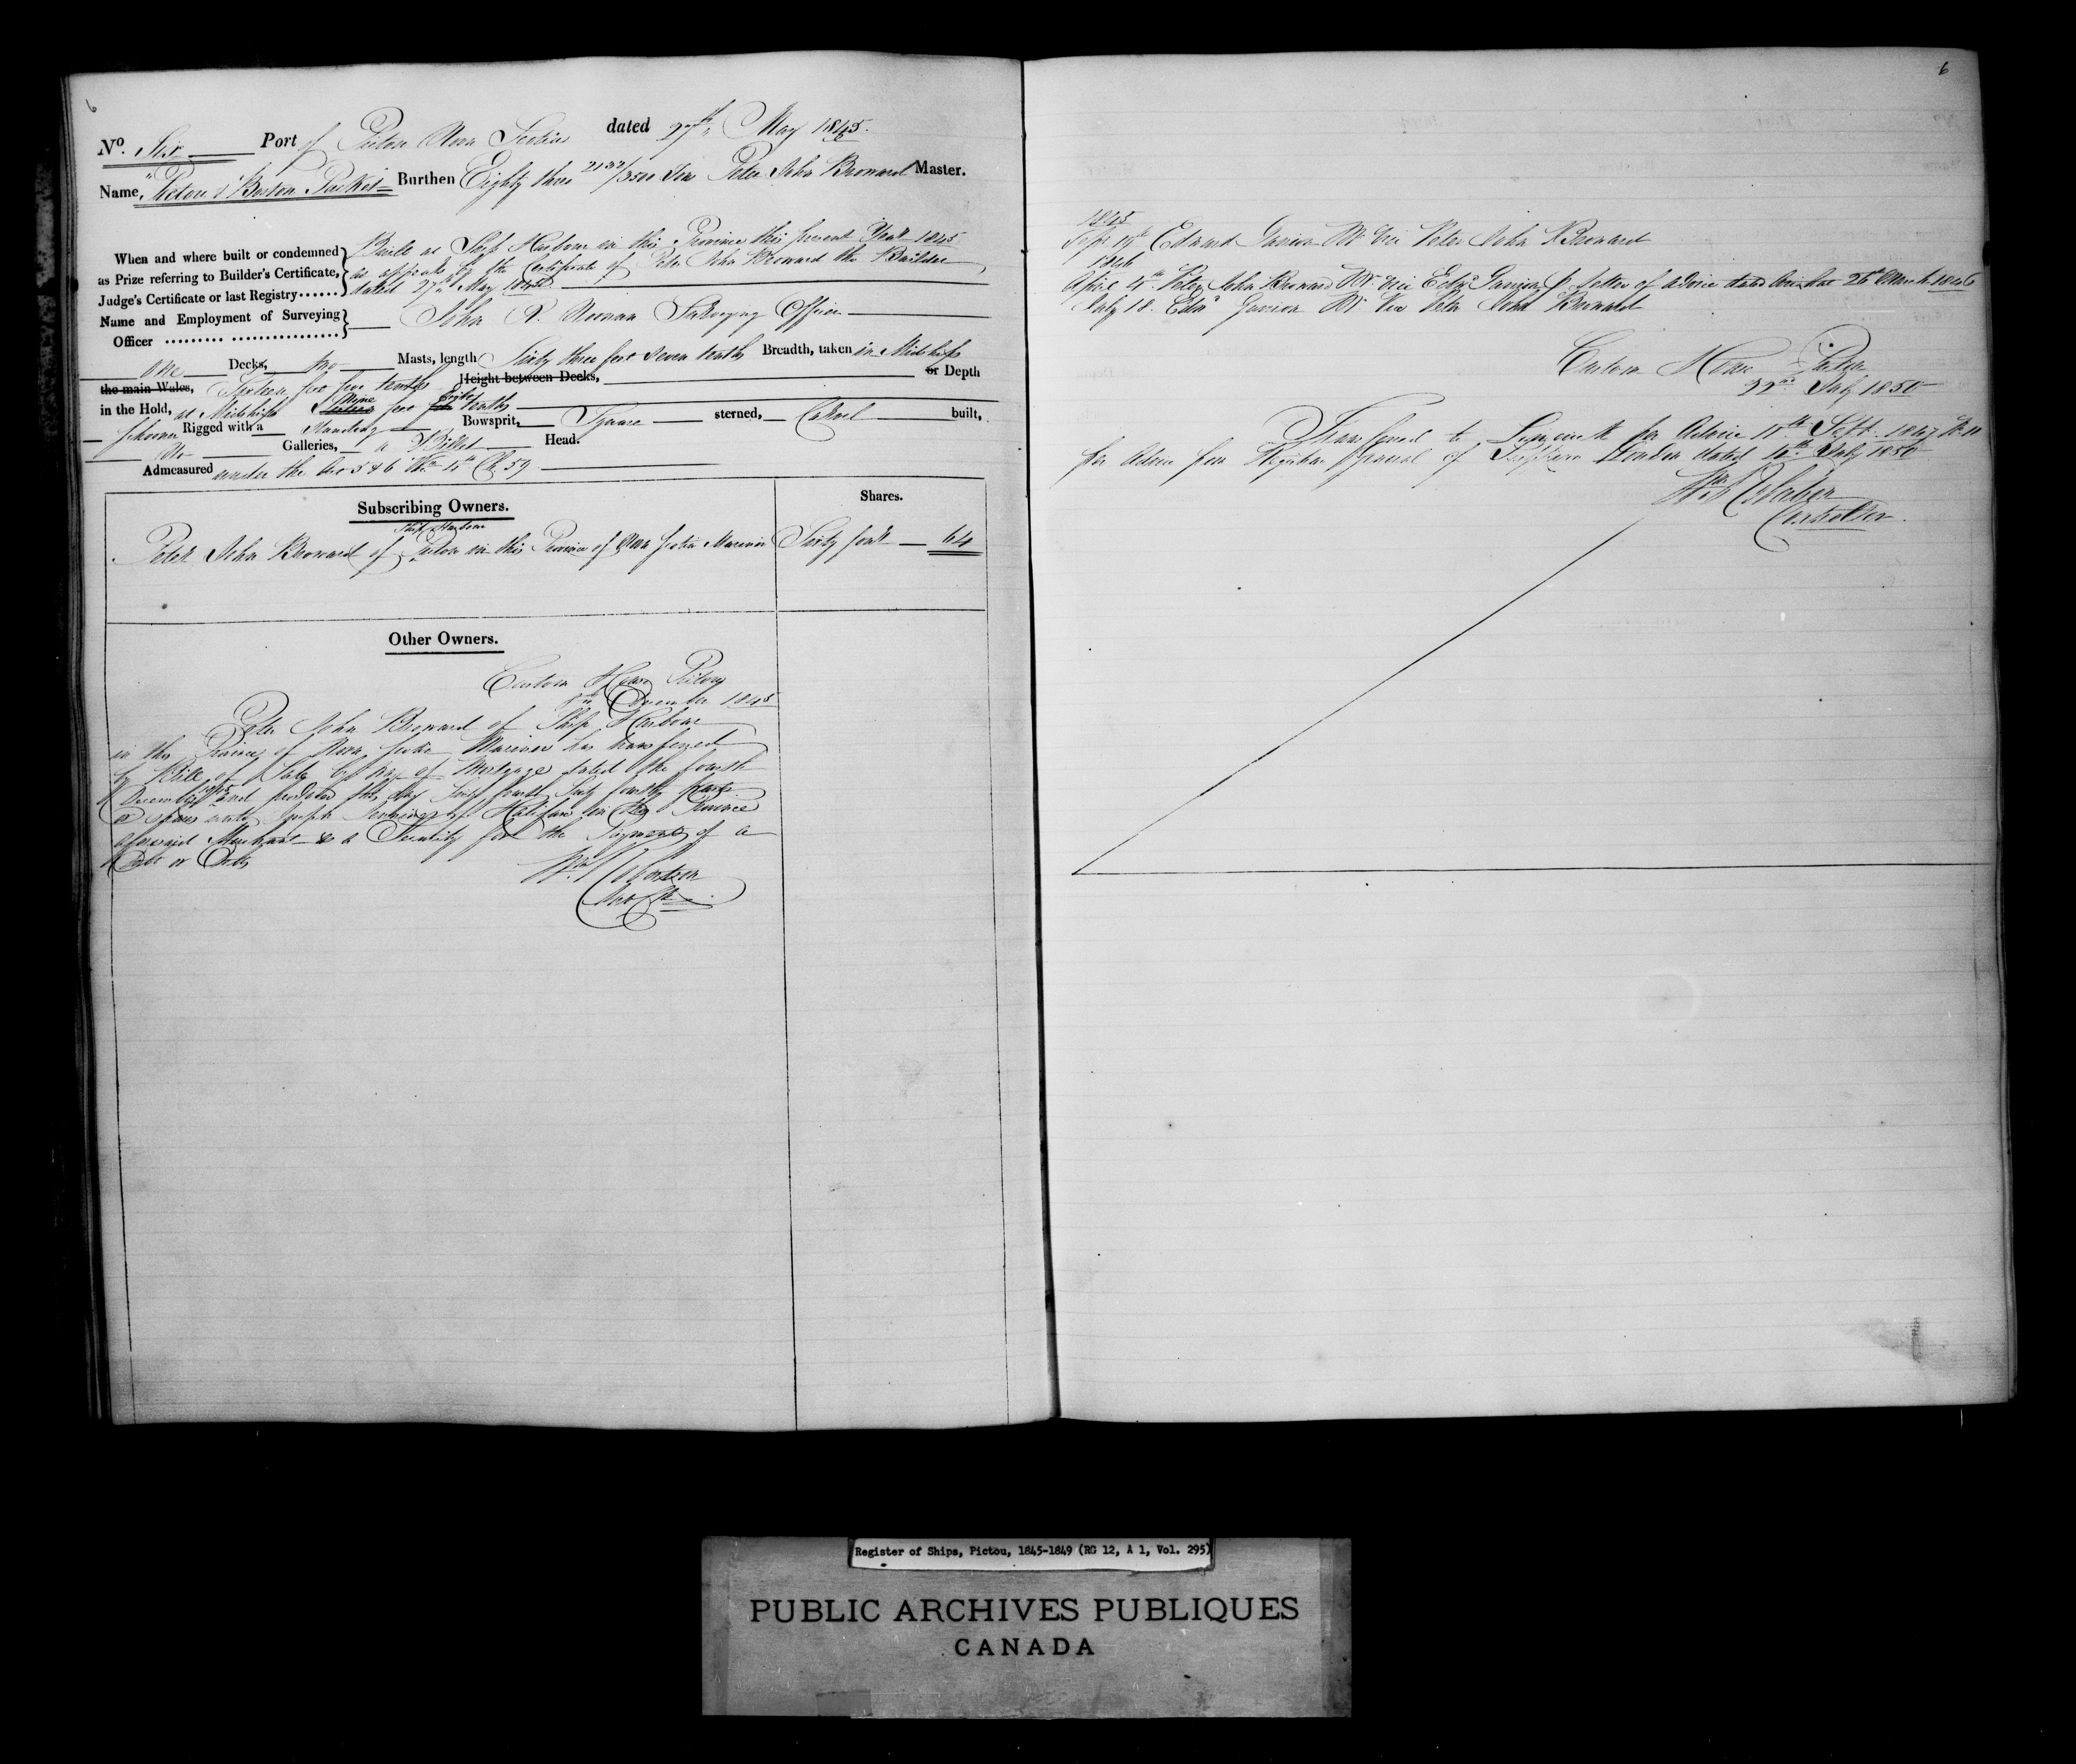 6
No. Six Port of Pictou Nova Scotia dated 27th May 1845.
Name, "Pictou & Boston Packet" Burthen Eighty three 2132/3500 Tons Peter John Brouard Master.
When and where built or condemned as Prize referring to Builder's Certificate, Judge's Certificate or last Registry......
Built at Ship Harbour in this Province this present Year 1845
as appears by the Certificate of Peter John Brouard the Builder
dated 27th May 1845
Name and Employment of Surveying Officer ......... ................
John R. Noonan Surveying Officer
One Decks, two Masts, length Sixty three feet seven tenths Breadth, taken in Midships
the main Wales, feet four tenths Height between Decks, or Depth
in the Hold, at Midships Nine feet Eight tenths
Schooner Rigged with a Standing Bowsprit, Square sterned, Carvel built,
No Galleries, a Billet Head.
Admeasured under the Act 5 & 6 Wm 4th Ch 59
Subscribing Owners. Shares.
Ship Harbour
Peter John Brouard of Pictou in this Province of Nova Scotia Mariner Sixty four 64
Other Owners.
Custom House Pictou
December 1845
Peter John Brouard of Ship Harbour
in the Province of Nova Scotia Mariner has transferred
by Bill of Sale by way of Mortgage dated the fourth
December 1845 and produced this day Sixty fourth Sixty fourth parts
or shares unto Joseph of Halifax in the Province
aforesaid Merchant as a Security for the Payment of a
Debt or Debts
Wm
6
1845
Sept 19th Edward Mr. vice Peter John Brouard
1846
April 4th Peter John Brouard Mr. vice Edwd letter of advice dated 26th March 1846
July 18. Edwd Mr. Vice Peter John Brouard
Custom House Pictou
22nd July 1850
Transferred to Limerick for Advice Sept. 1847 No 11
per Advice from Registrar General of Shipping London dated July 1850
Wm
Controller.
Register of Ships, Pictou, 1845-1849 (RG 12, A 1, Vol. 295)
PUBLIC ARCHIVES PUBLIQUES
CANADA